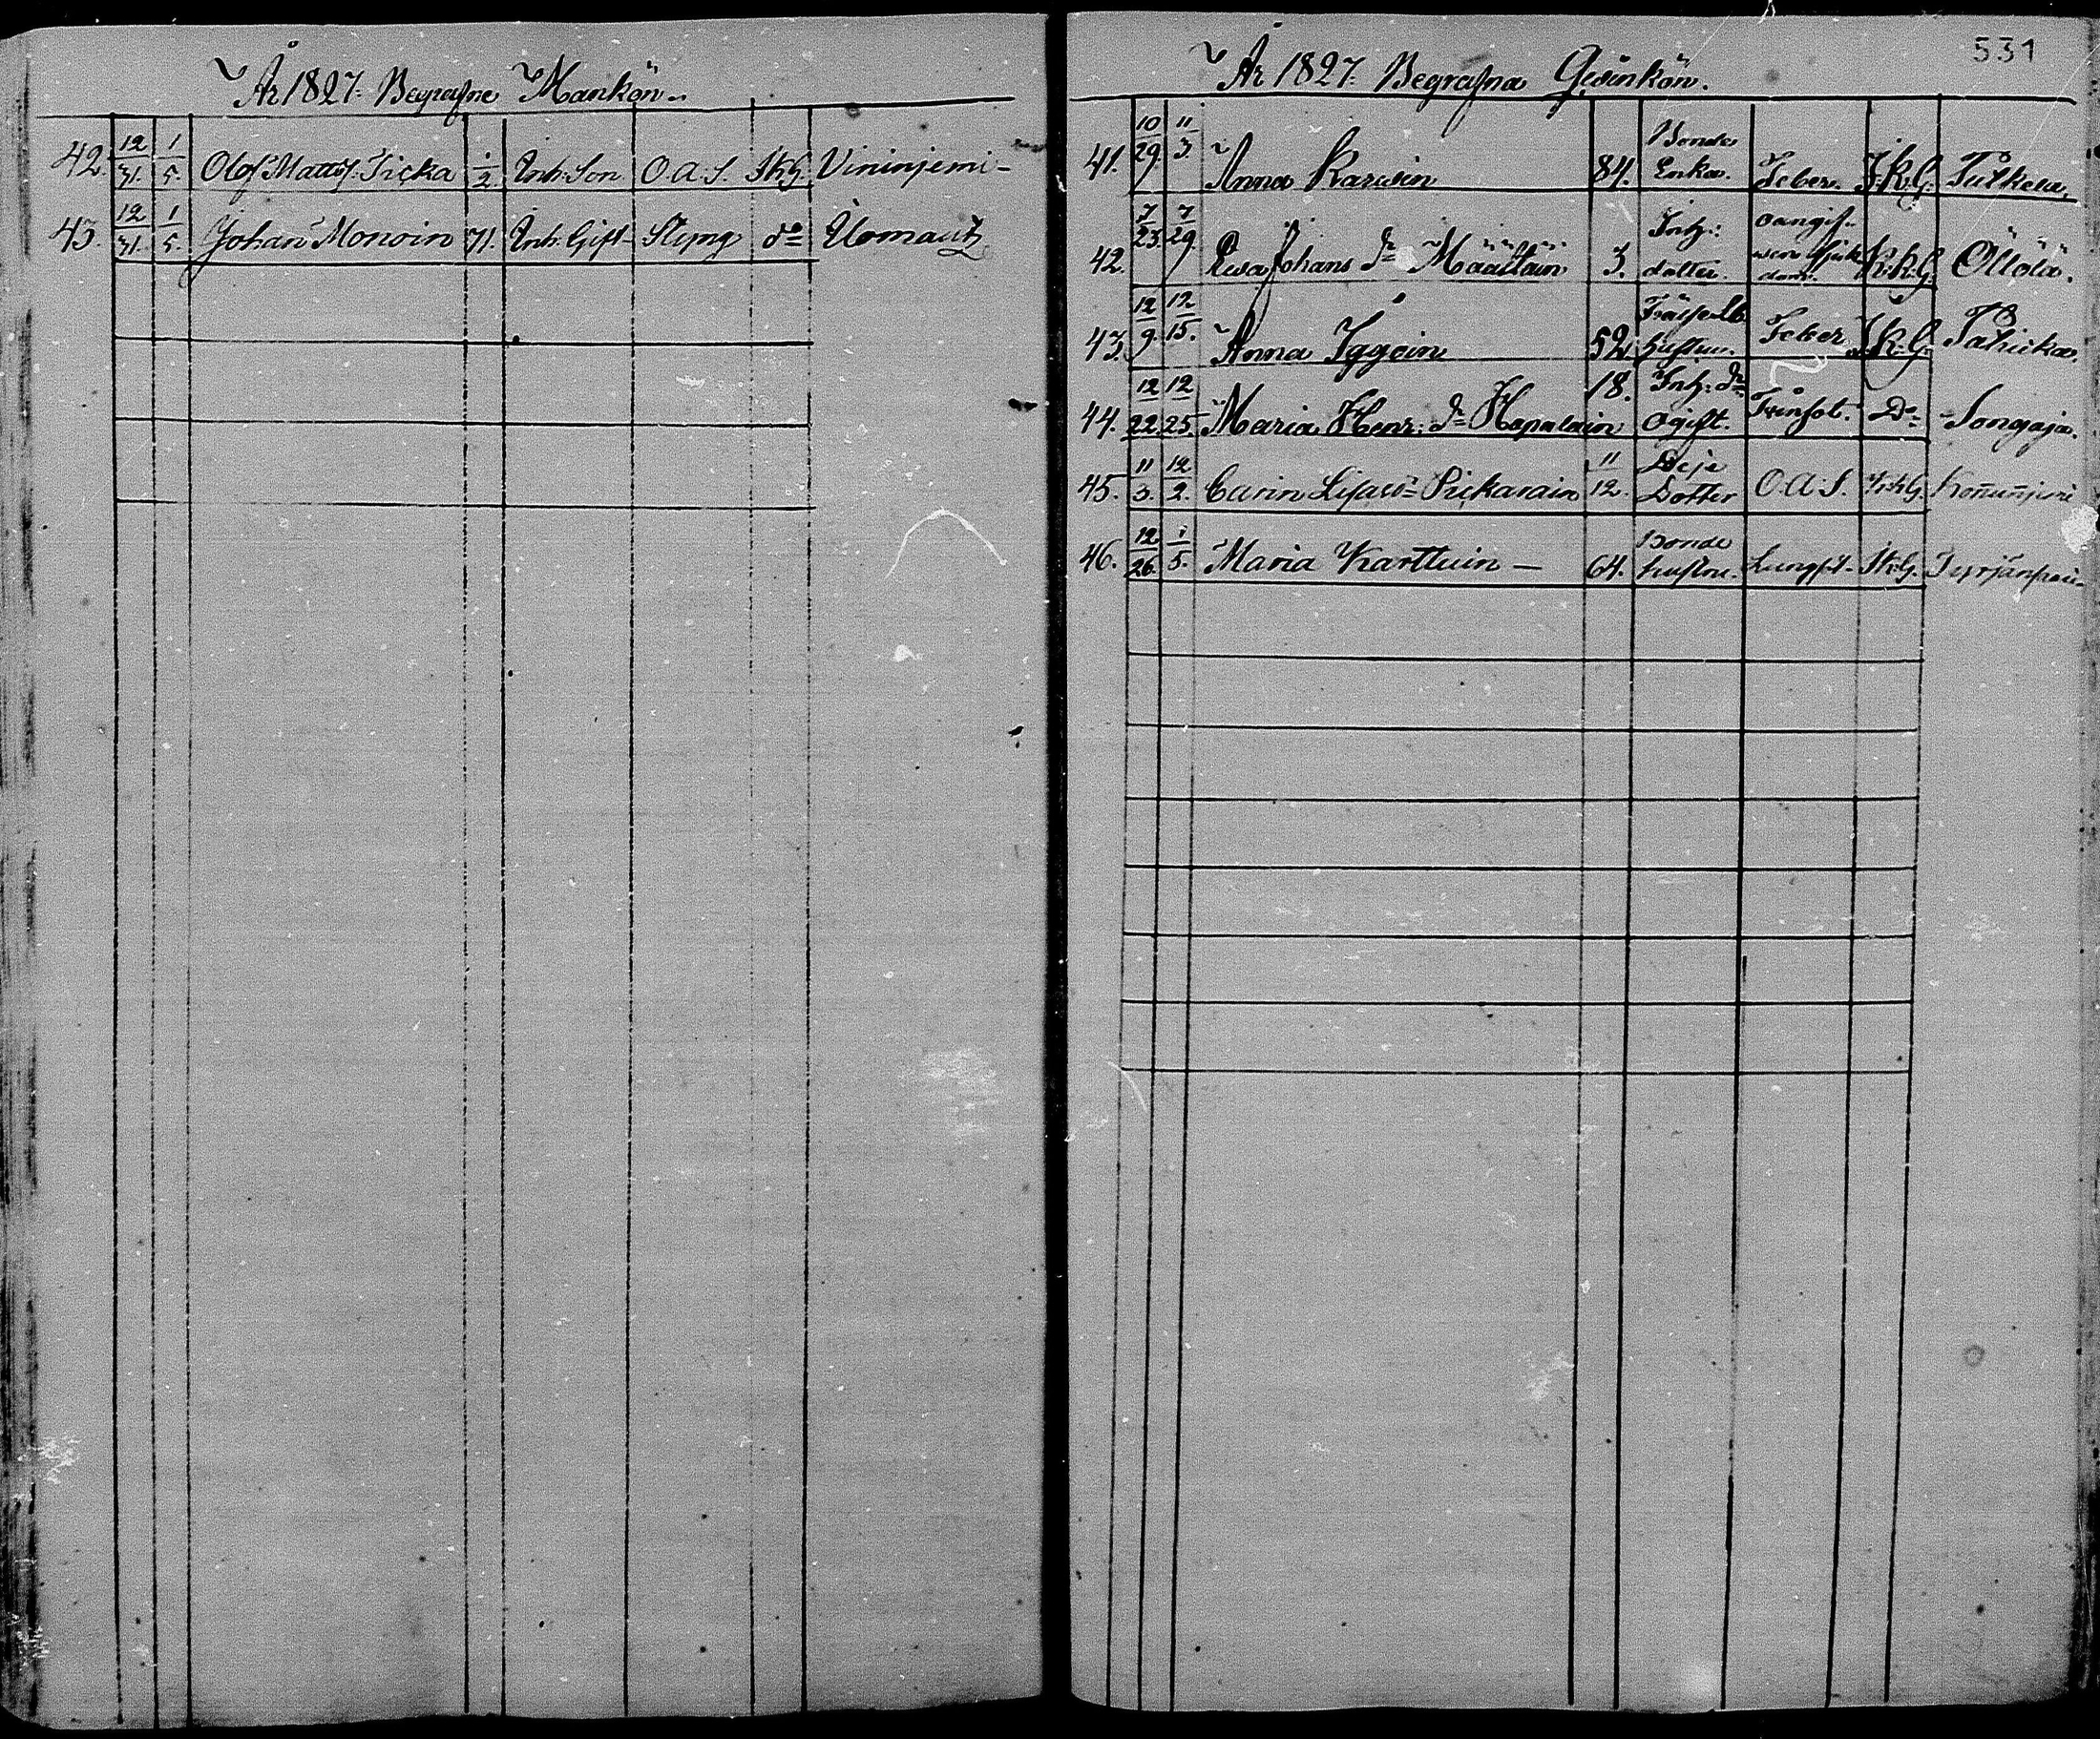 År 1827. Begrafne Mankön.
42. 12/31. 1/5. Olof Matts: Ticka 1/2 Inh: Son O. A. S. I K G. Vininjemi
43. 12/31. 1/5. Johan Monoin 71. Inh: Gift Styng do
531
År 1827. Begrafna Qvinkön.
41. 10/29. 11/3. Anna Karvoin 84. Bonde Enka. Feber. I. K. G.
42. 7/23. 7/29. Ewa Johans dr Määttäin 3. Inh: dotter. oangif- wen Sjuk dom. I. K. G. Öllölä.
43. 12/9. 12/15. Anna Iggoin 52. hustru. Feber I. K. G.
44. 12/22. 12/25. Maria Henr: dr Hapalain 18. Inh: dr Ogift. Tvinsot. Do Songaja.
45. 11/3. 12/2. Carin Lisa 11/12. Deje Dotter O. A. S. I K G.
46. 12/26. 1/5. Maria Karttuin 64. Bonde hustru. Lungst. I K G.